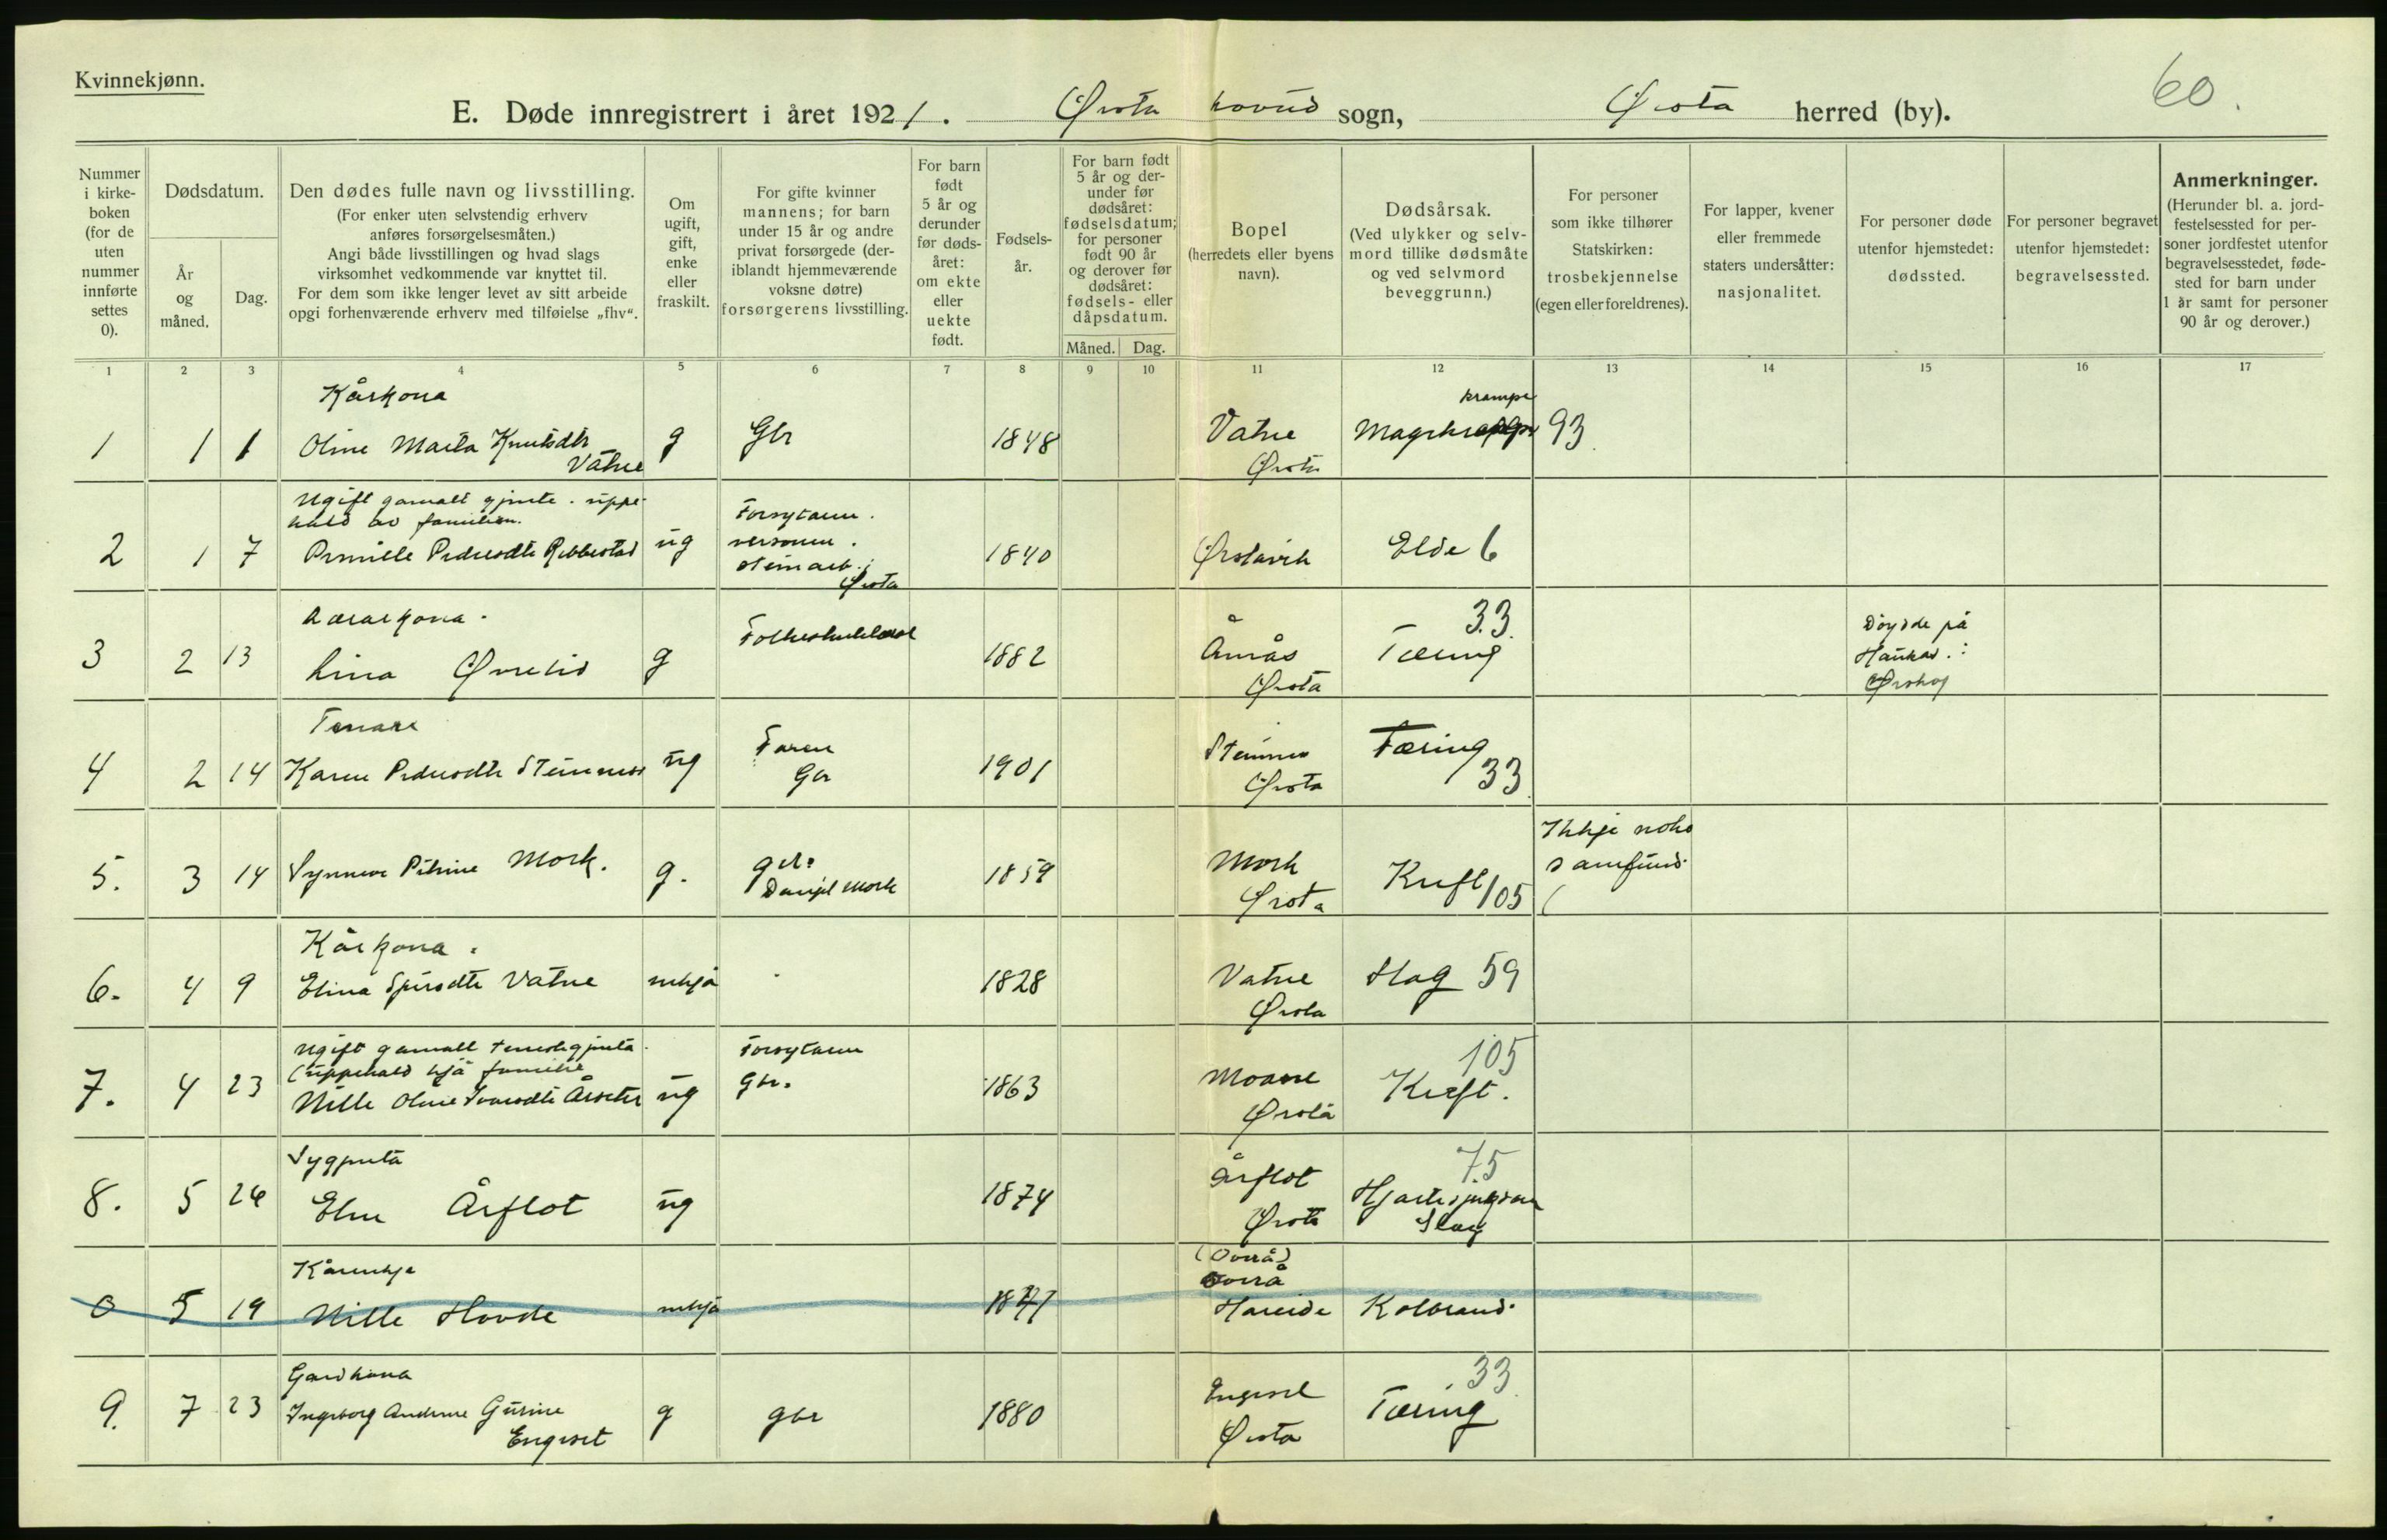 Kvinnekjønn.
60.
E. Døde innregistrert i året 1921. Ørsta hovud sogn, Ørsta herred (by).
Nummer i kirke-boken (for de uten nummer innførte settes 0).
Dødsdatum.
År og måned.
Dag.
Den dødes fulle navn og livsstilling.
(For enker uten selvstendig erhverv anføres forsørgelsesmåten.)
Angi både livsstillingen og hvad slags virksomhet vedkommende var knyttet til.
For dem som ikke lenger levet av sitt arbeide opgi forhenværende erhverv med tilføielse „fhv“.
Om ugift, gift, enke eller fraskilt.
For gifte kvinner mannens; for barn under 15 år og andre privat forsørgede (der-iblandt hjemmeværende voksne døtre) forsørgerens livsstilling.
For barn født 5 år og derunder før døds-året: om ekte eller uekte født.
Fødsels-år.
For barn født 5 år og der-under før dødsåret: fødselsdatum; for personer født 90 år og derover før dødsåret: fødsels- eller dåpsdatum.
Måned. Dag.
Bopel (herredets eller byens navn).
Dødsårsak.
(Ved ulykker og selv-mord tillike dødsmåte og ved selvmord beveggrunn.)
For personer som ikke tilhører Statskirken: trosbekjennelse (egen eller foreldrenes).
For lapper, kvener eller fremmede staters undersåtter: nasjonalitet.
For personer døde utenfor hjemstedet: dødssted.
For personer begravet utenfor hjemstedet: begravelsessted.
Anmerkninger.
(Herunder bl. a. jord-festelsessted for per-soner jordfestet utenfor begravelsesstedet, føde-sted for barn under 1 år samt for personer 90 år og derover.)
1 2 3 4 5 6 7 8 9 10 11 12 13 14 15 16 17
Kårkona
krampe
1 1 1 Oline Marta Knutsdtr Vatne g Gbr 1848 Vatne Ørsta 93
Ugift gamall gjente. uppe-
hald av familien.
2 1 7 Pernille Pedersdtr Ribbestad ug Forsytaren steinarb. i Ørsta 1840 Ørstavik Elde 6
Lærarkona.
3 2 13 Lina Øvrelid g Folkeskulelærar 1882 Åmås Ørsta Tæring 33. Døydde på Haukås. Ørskog
Tenare
4 2 14 Karen Pedersdtr Steinnes ug Faren Gbr 1901 Steinnes Ørsta Tæring 33
5. 3 14 Synneve Petrine Mork. g. gbr. Daniel Mork 1859 Mork Ørsta Kreft 105 Ikkje noko samfund.
Kårkona.
6. 4 9 Elina Sjursdtr Vatne enkja 1828 Vatne Ørsta Slag 59
Ugift gamall tenestgjenta.
(uppehald hjå familie
7. 4 23 Nille Oline Iversdtr Årseter ug Forsytaren Gbr. 1863 Moane Ørsta Kreft. 105
Sygjenta
8. 5 26 Eline Årflot ug 1874 Årflot Ørsta 75 Hjartesjukdom Slag
Kårenkje
0 5 19 Nille Hovde enkja (Overå) Overå Hareide Kolbrand.
Gardkona
9. 7 23 Ingeborg Andrine Gurine Engeset g gbr 1880 Engeset Ørsta Tæring 33